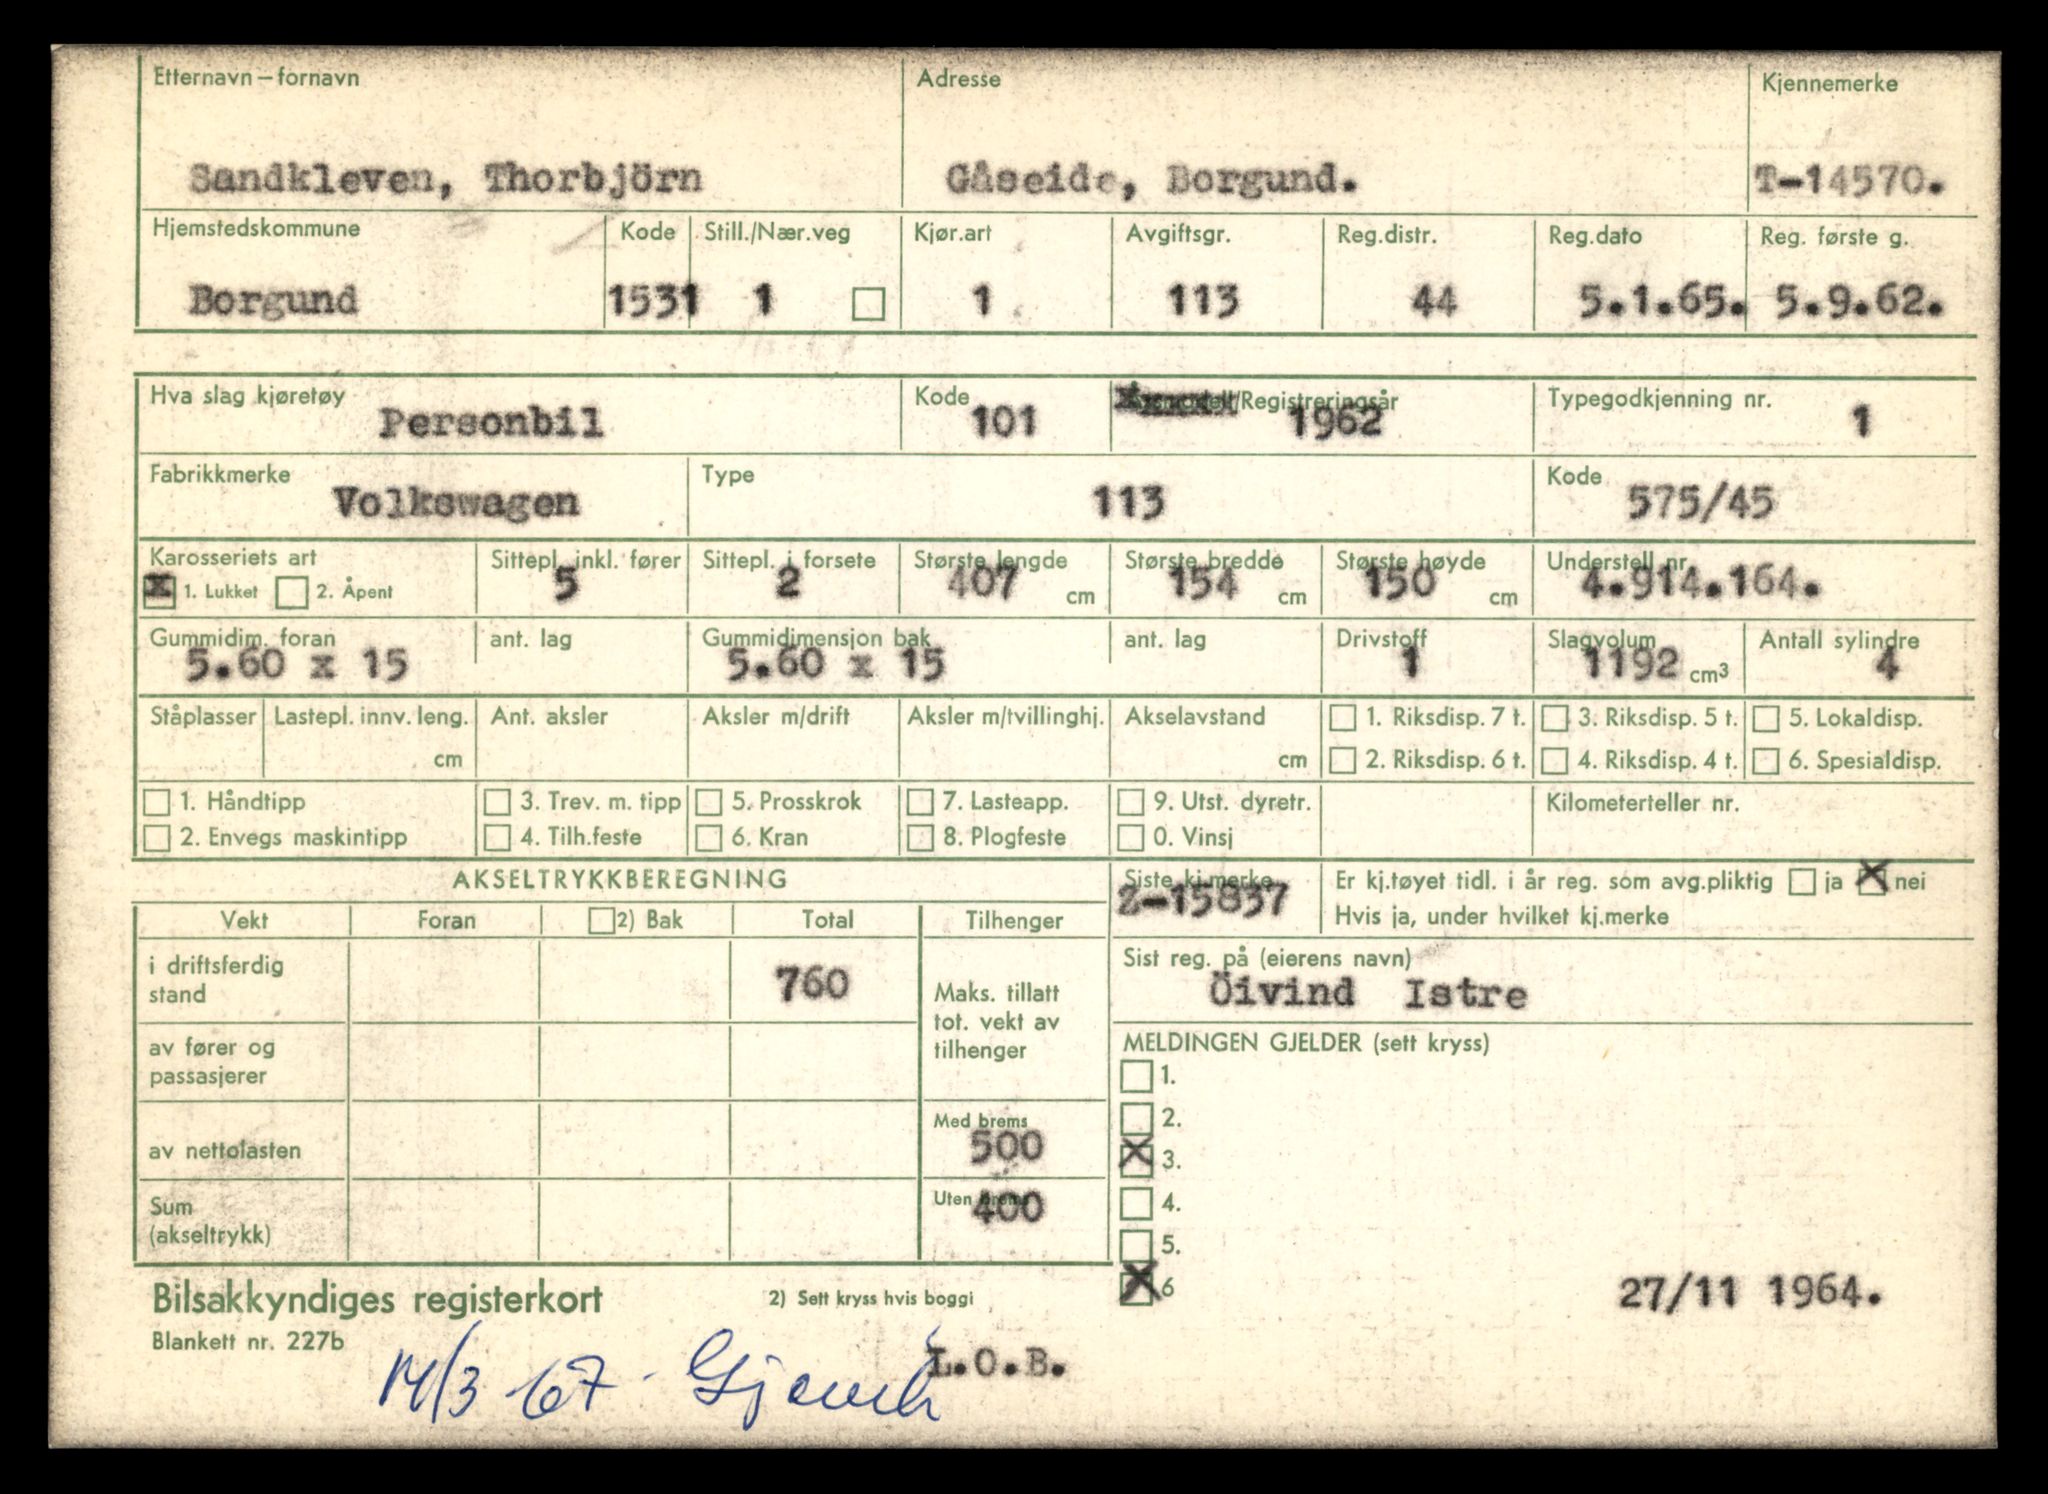 Etternavn – fornavn Adresse Kjennemerke
Sandkleven, Thorbjörn Gåseide, Borgund. T-14570.
Hjemstedskommune Kode Still./Nær.veg Kjør.art Avgiftsgr. Reg.distr. Reg.dato Reg. første g.
Borgund 1531 1 1 113 44 5.1.65. 5.9.62.
Hva slag kjøretøy Kode /Registreringsår Typegodkjenning nr.
Personbil 101 1962 1
Fabrikkmerke Type Kode
Volkswagen 113 575/45
Karosseriets art Sittepl. inkl. fører Sittepl. i forsete Største lengde Største bredde Største høyde Understell nr.
x 1. Lukket 2. Åpent 5 2 407 cm 154 cm 150 cm 4.914.164.
Gummidim. foran ant. lag Gummidimensjon bak ant. lag Drivstoff Slagvolum Antall sylindre
5.60 x 15 5.60 x 15 1 1192 cm3 4
Ståplasser Lastepl. innv. leng. Ant. aksler Aksler m/drift Aksler m/tvillinghj. Akselavstand 1. Riksdisp. 7 t. 3. Riksdisp. 5 t. 5. Lokaldisp.
cm cm 2. Riksdisp. 6 t. 4. Riksdisp. 4 t. 6. Spesialdisp.
1. Håndtipp 3. Trev. m. tipp 5. Prosskrok 7. Lasteapp. 9. Utst. dyretr. Kilometerteller nr.
2. Envegs maskintipp 4. Tilh.feste 6. Kran 8. Plogfeste 0. Vinsj
AKSELTRYKKBEREGNING Siste kj.merke Er kj.tøyet tidl. i år reg. som avg.pliktig ja X nei
Z-15837
Vekt Foran 2) Bak Total Tilhenger Hvis ja, under hvilket kj.merke
i driftsferdig Sist reg. på (eierens navn)
stand 760 Maks. tillatt Öivind Istre
tot. vekt av
av fører og tilhenger MELDINGEN GJELDER (sett kryss)
passasjerer 1.
Med brems 2.
av nettolasten 500 X 3.
Uten brems 4.
Sum 400
(akseltrykk) 5.
Bilsakkyndiges registerkort 2) Sett kryss hvis boggi X 6 27/11 1964.
Blankett nr. 227b
L.O.B.
14/3-67